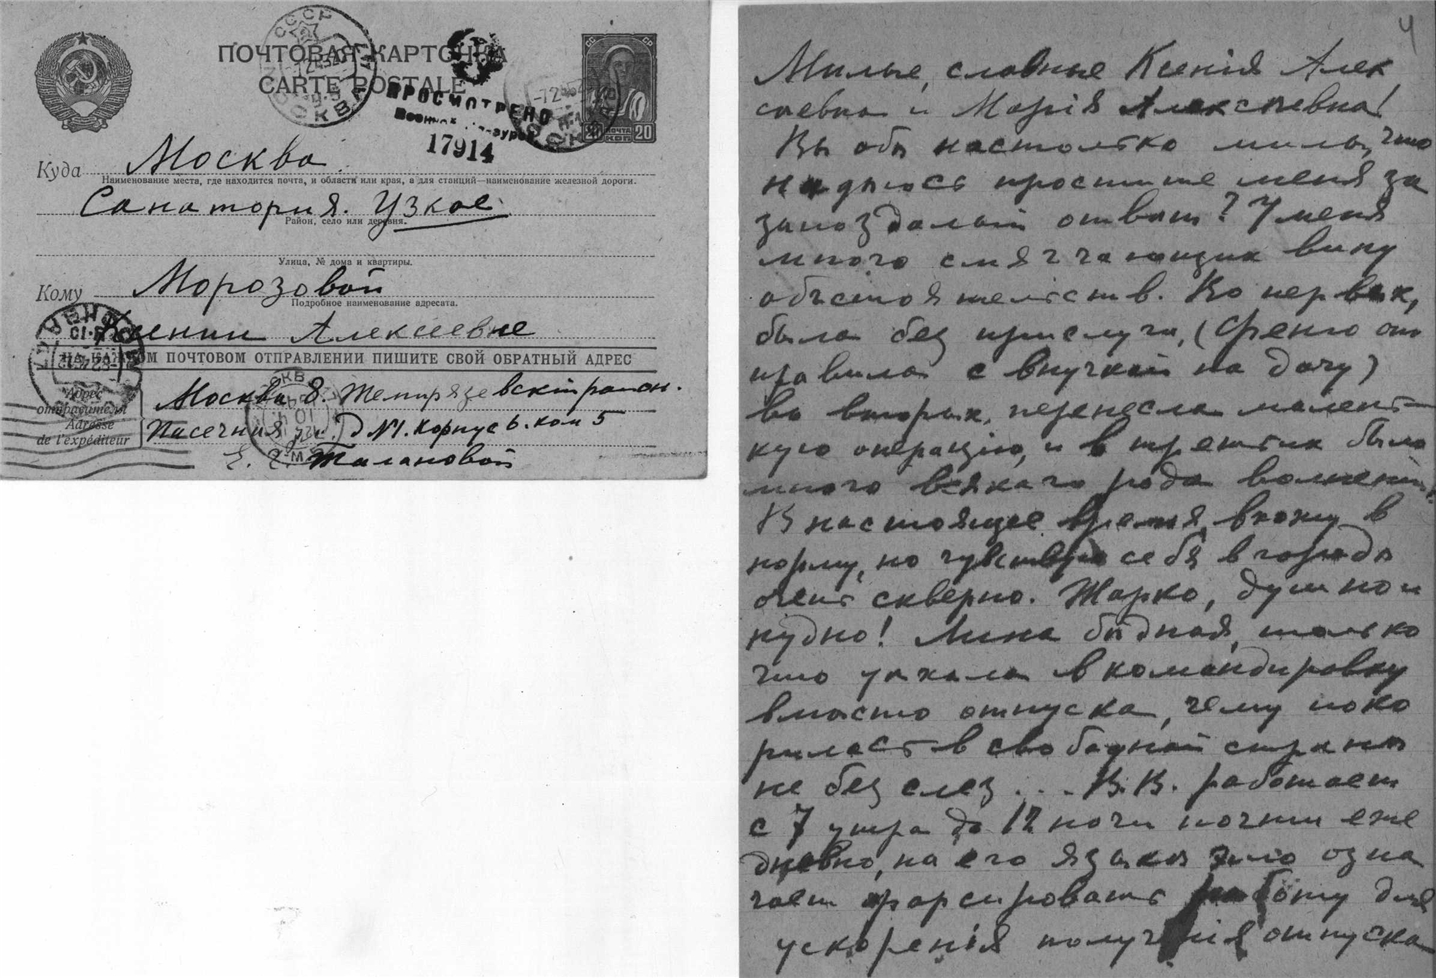 ПОЧТОВАЯ КАРТОЧКА
CARTE POSTALE
ПРОСМОТРЕНО
17914
20
коп
Куда Москва
Наименование места, где находится почта, и области или края, а для станций—наименование железной дороги.
Санатория. Узкое
Район, село или деревня.
Улица, № дома и квартиры.
Кому Морозовой
Подробное наименование адресата.
Ксении Алексеевне
ПОЧТОВОМ ОТПРАВЛЕНИИ ПИШИТЕ СВОЙ ОБРАТНЫЙ АДРЕС
Адрес
отправителя
Adresse
de l'expéditeur
Москва 8. Темирязевскій район.
Пасечная ул. д №1. корпус 6. ком 5
Е. С. Талановой
4
Милые, славные Ксенія Алек
сѣевна и Марія Алексѣевна!
Вы обѣ настолько милы, что
надѣюсь простите меня за
запоздалый отвѣт? У меня
много смягчающих вину
обстоятельств. Во первых,
была без прислуги, (Френю от
правила с внучкой на дачу)
во вторых, перенесла малень
кую операцію, и в третьих было
много всякаго рода волнений.
В настоящее время, вхожу в
норму, но чувствую себя в городѣ
очень скверно. Жарко, душно и
нудно! Мина бѣдная, только
что уѣхала в командировку
вмѣсто отпуска, чему поко
рилась в свободной странѣ
не без слез... В.В. работает
с 7 утра до 12 ночи почти еже
дневно, на его языкѣ это озна
чает форсировать работу для
ускоренія полученія отпуска